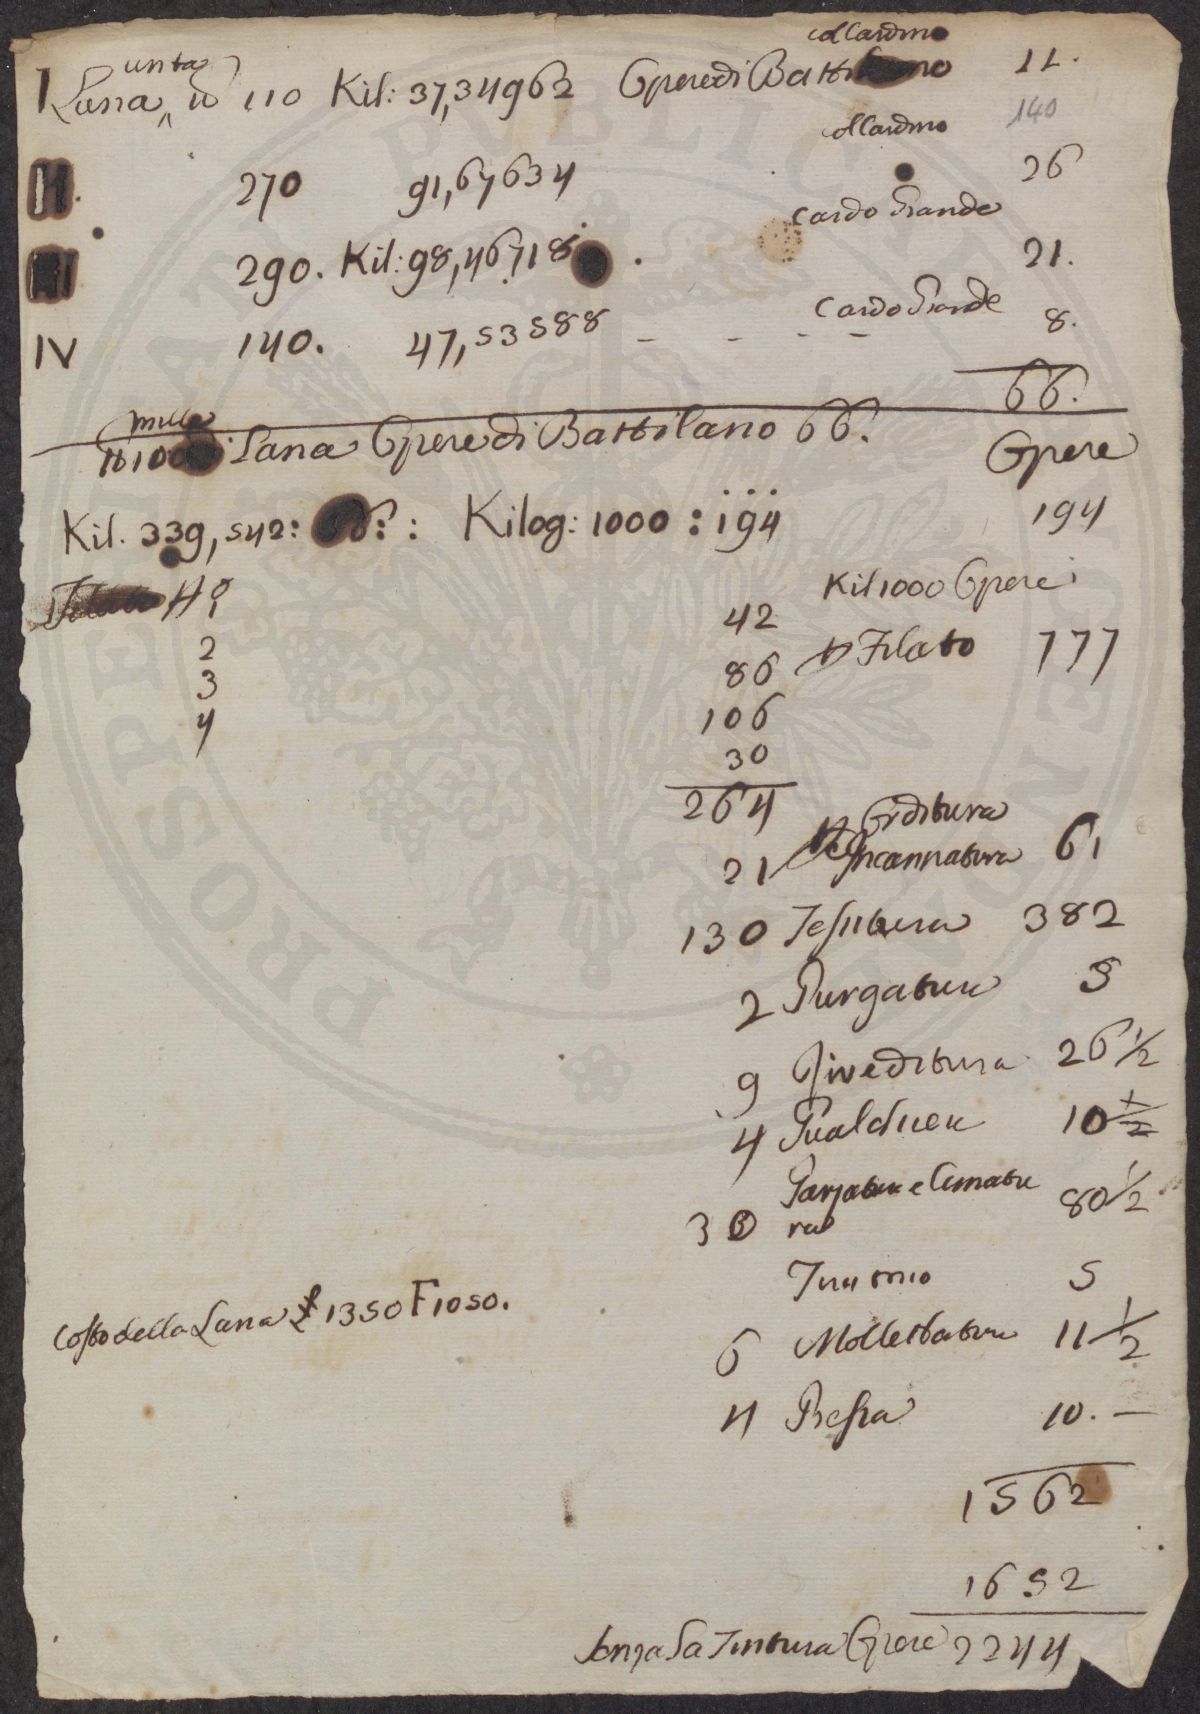 unta
I Lana 110 Kil: 37,34963 Opere di Batti 11.
col Cardino
140
II. 270 91,67634 col Cardino 26
III 290. Kil: 98,46718 . Cardo Grande 21.
IV 140. 47,53588 - - - - Cardo Grande 8.
66.
mille
lb 1000 di Lana Opere di Battilano 66. Opere
Kil. 339,542: 66: : Kilog: 1000 : 194 194
Kil 1000 Opere
1 42
2 86 Filato 777
3 106
4 30
264
Orditura
21 Incannatura 61
130 Tessitura 382
2 Purgatura 5
9 Riveditura 26 1/2
4 Gualchiera 10 1/2
30 Garzatura e Cimatu 80 1/2
ra
5
Costo della Lana £ 1350 F 1050.
6 Mollettatura 11 1/2
4 Pressa 10. —
1562
1652
senza la Tintura Opere 2244
PROSPERITATI PUBLICAE AUGENDAE